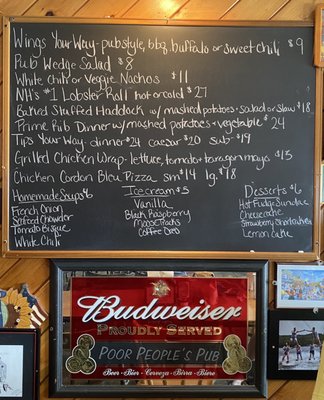 Wings Your Way - pubstyle, bbq, buffalo or sweet chili $9
Pub Wedge Salad $8
White Chili or Veggie Nachos $11
NH's #1 Lobster Roll hot or cold $27
Baked Stuffed Haddock w/ mashed potatoes + salad or slaw $18
Prime Rib Dinner w/ mashed potatoes + vegetable $24
Tips Your Way - dinner $24 caesar $20 sub $19
Grilled Chicken Wrap - lettuce, tomato + taragon mayo $13
Chicken Cordon Bleu Pizza sm $14 lg. $18
Homemade Soups $6
French Onion
Seafood Chowder
Tomato Bisque
White Chili
Ice cream $5
Vanilla
Black Raspberry
Moose Tracks
Coffee Oreo
Desserts $6
Hot Fudge Sundae
Cheesecake
Strawberry Shortcake
Lemon Cake
Budweiser
PROUDLY SERVED
POOR PEOPLE'S PUB
Beer • Bier • Cerveza • Birra • Bière